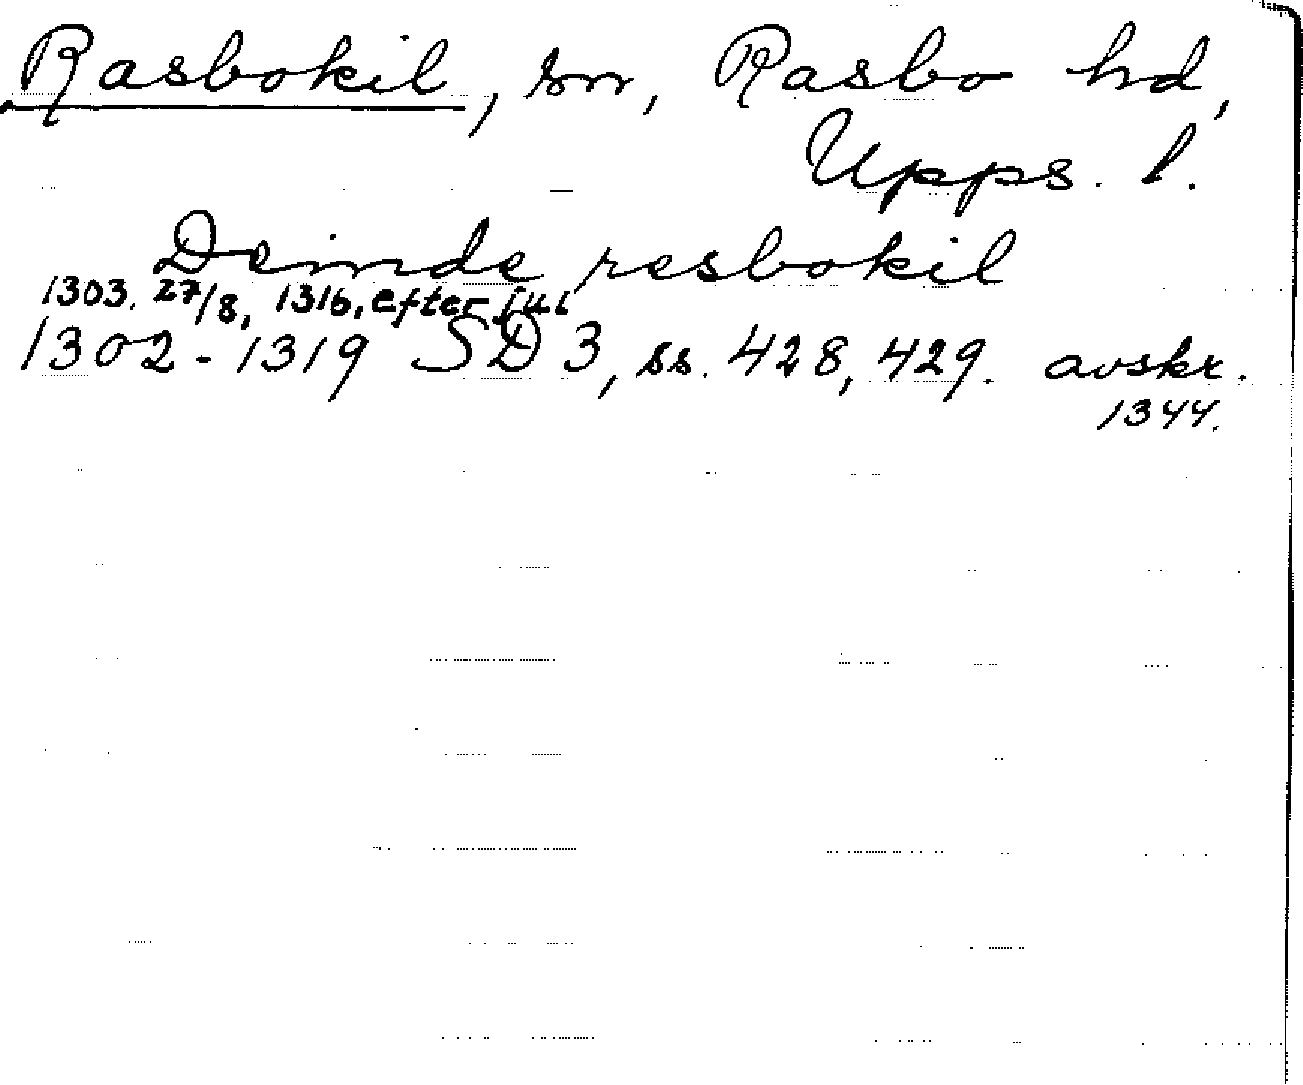 Rasbokil, sn, Rasbo hd,
Upps. l.
Deinde resbokil
1303. 27/8, 1316, efter jul
1302-1319 SD 3, ss. 428, 429. avskr.
1344.